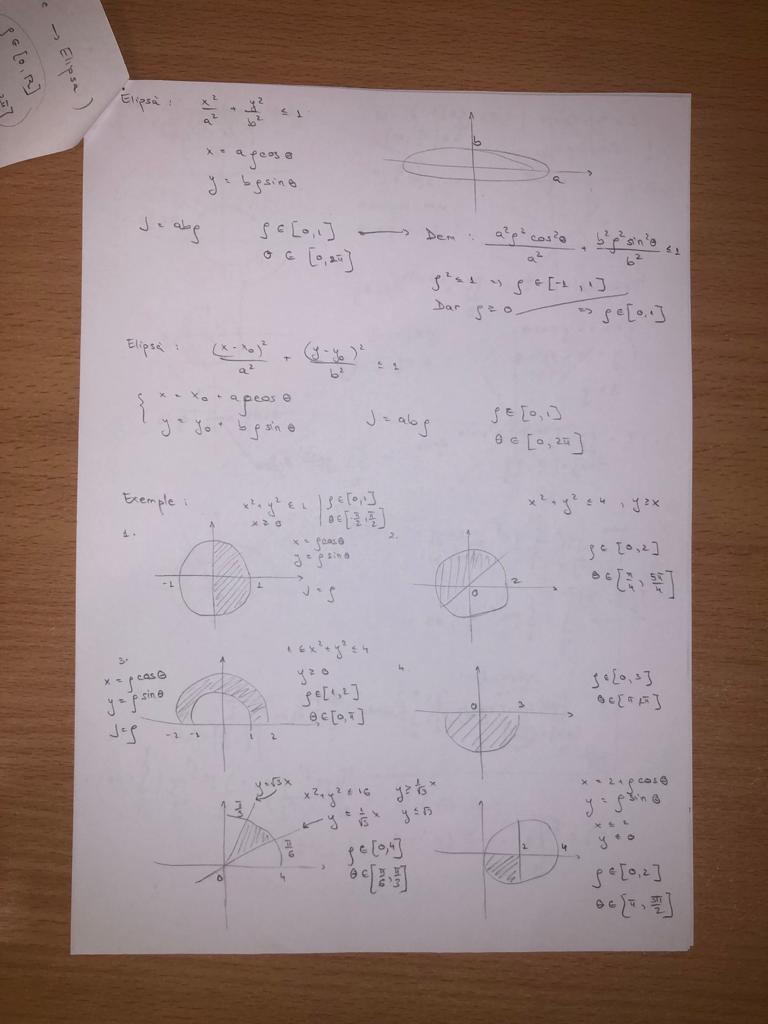 → Elipsa )
ρ ∈ [0, R]
Elipsă : x²/a² + y²/b² ≤ 1
x = aρcosθ
y = bρsinθ
b
a
J = abρ
ρ ∈ [0,1]
θ ∈ [0,2π]
→ Dem : a²ρ²cos²θ/a² + b²ρ²sin²θ/b² ≤ 1
ρ² ≤ 1 ⇒ ρ ∈ [-1, 1]
Dar ρ ≥ 0 ⇒ ρ ∈ [0,1]
Elipsă : (x-x₀)²/a² + (y-y₀)²/b² ≤ 1
{ x = x₀ + aρcosθ
y = y₀ + bρsinθ
J = abρ
ρ ∈ [0,1]
θ ∈ [0,2π]
Exemple :
1.
x² + y² ≤ 1
x ≥ 0
ρ ∈ [0,1]
x = ρcosθ
y = ρsinθ
J = ρ
-1 1
2.
x² + y² ≤ 4 , y ≥ x
ρ ∈ [0,2]
θ ∈ [π/4, 5π/4]
0 2
3.
x = ρcosθ
y = ρsinθ
J = ρ
1 ≤ x² + y² ≤ 4
y ≥ 0
ρ ∈ [1,2]
θ ∈ [0,π]
-2 -1 1 2
4.
ρ ∈ [0,3]
θ ∈ [π,2π]
0 3
y = √3x
π/3
x² + y² ≤ 16 y ≥ 1/√3 x
y = 1/√3 x y ≤ √3
π/6
ρ ∈ [0,4]
θ ∈ [π/6, π/3]
0 4
x = 2 + ρcosθ
y = ρsinθ
x ≤ 2
y ≤ 0
ρ ∈ [0,2]
θ ∈ [π, 3π/2]
2 4